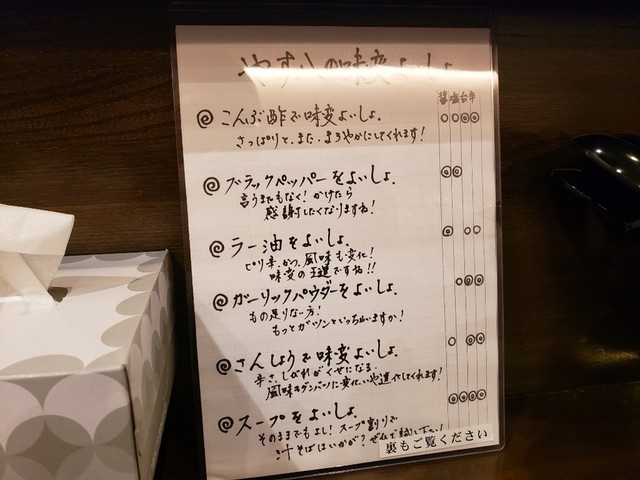 やすいの味変よいしょ
醤塩台辛
こんぶ酢で味変よいしょ。
さっぱりと、また、まろやかにしてくれます!
ブラックペッパーをよいしょ。
言うまでもなく!かけたら
感謝したくなりますね!
ラー油をよいしょ。
ピリ辛、かつ、風味も変化!
味変の王道ですね!!
ガーリックパウダーをよいしょ。
もの足りない方!
もっとガツンといっちゃいますか!
さんしょうで味変よいしょ。
辛さ、しびれがくせになる。
風味もグンバツに変化、いや進化してくれます!
スープをよいしょ。
そのままでもよし!スープ割りで
汁そばはいかが?ぜひお試し下さい!
裏もご覧ください